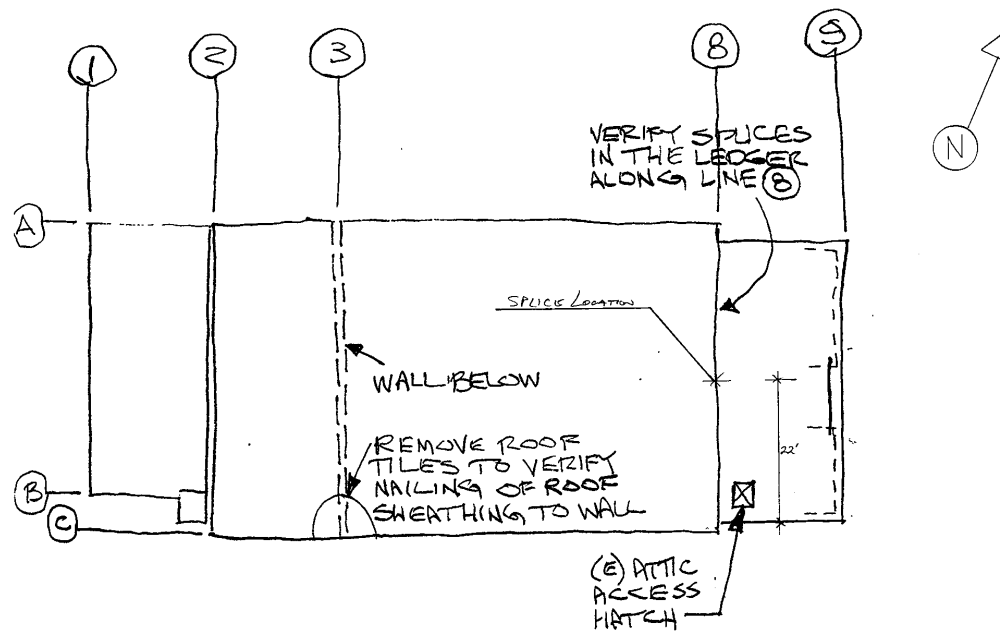 1
2
3
8
9
N
VERIFY SPLICES
IN THE LEDGER
ALONG LINE 8
A
SPLICE LOCATION
WALL BELOW
REMOVE ROOF
TILES TO VERIFY
NAILING OF ROOF
SHEATHING TO WALL
22'
B
C
(E) ATTIC
ACCESS
HATCH